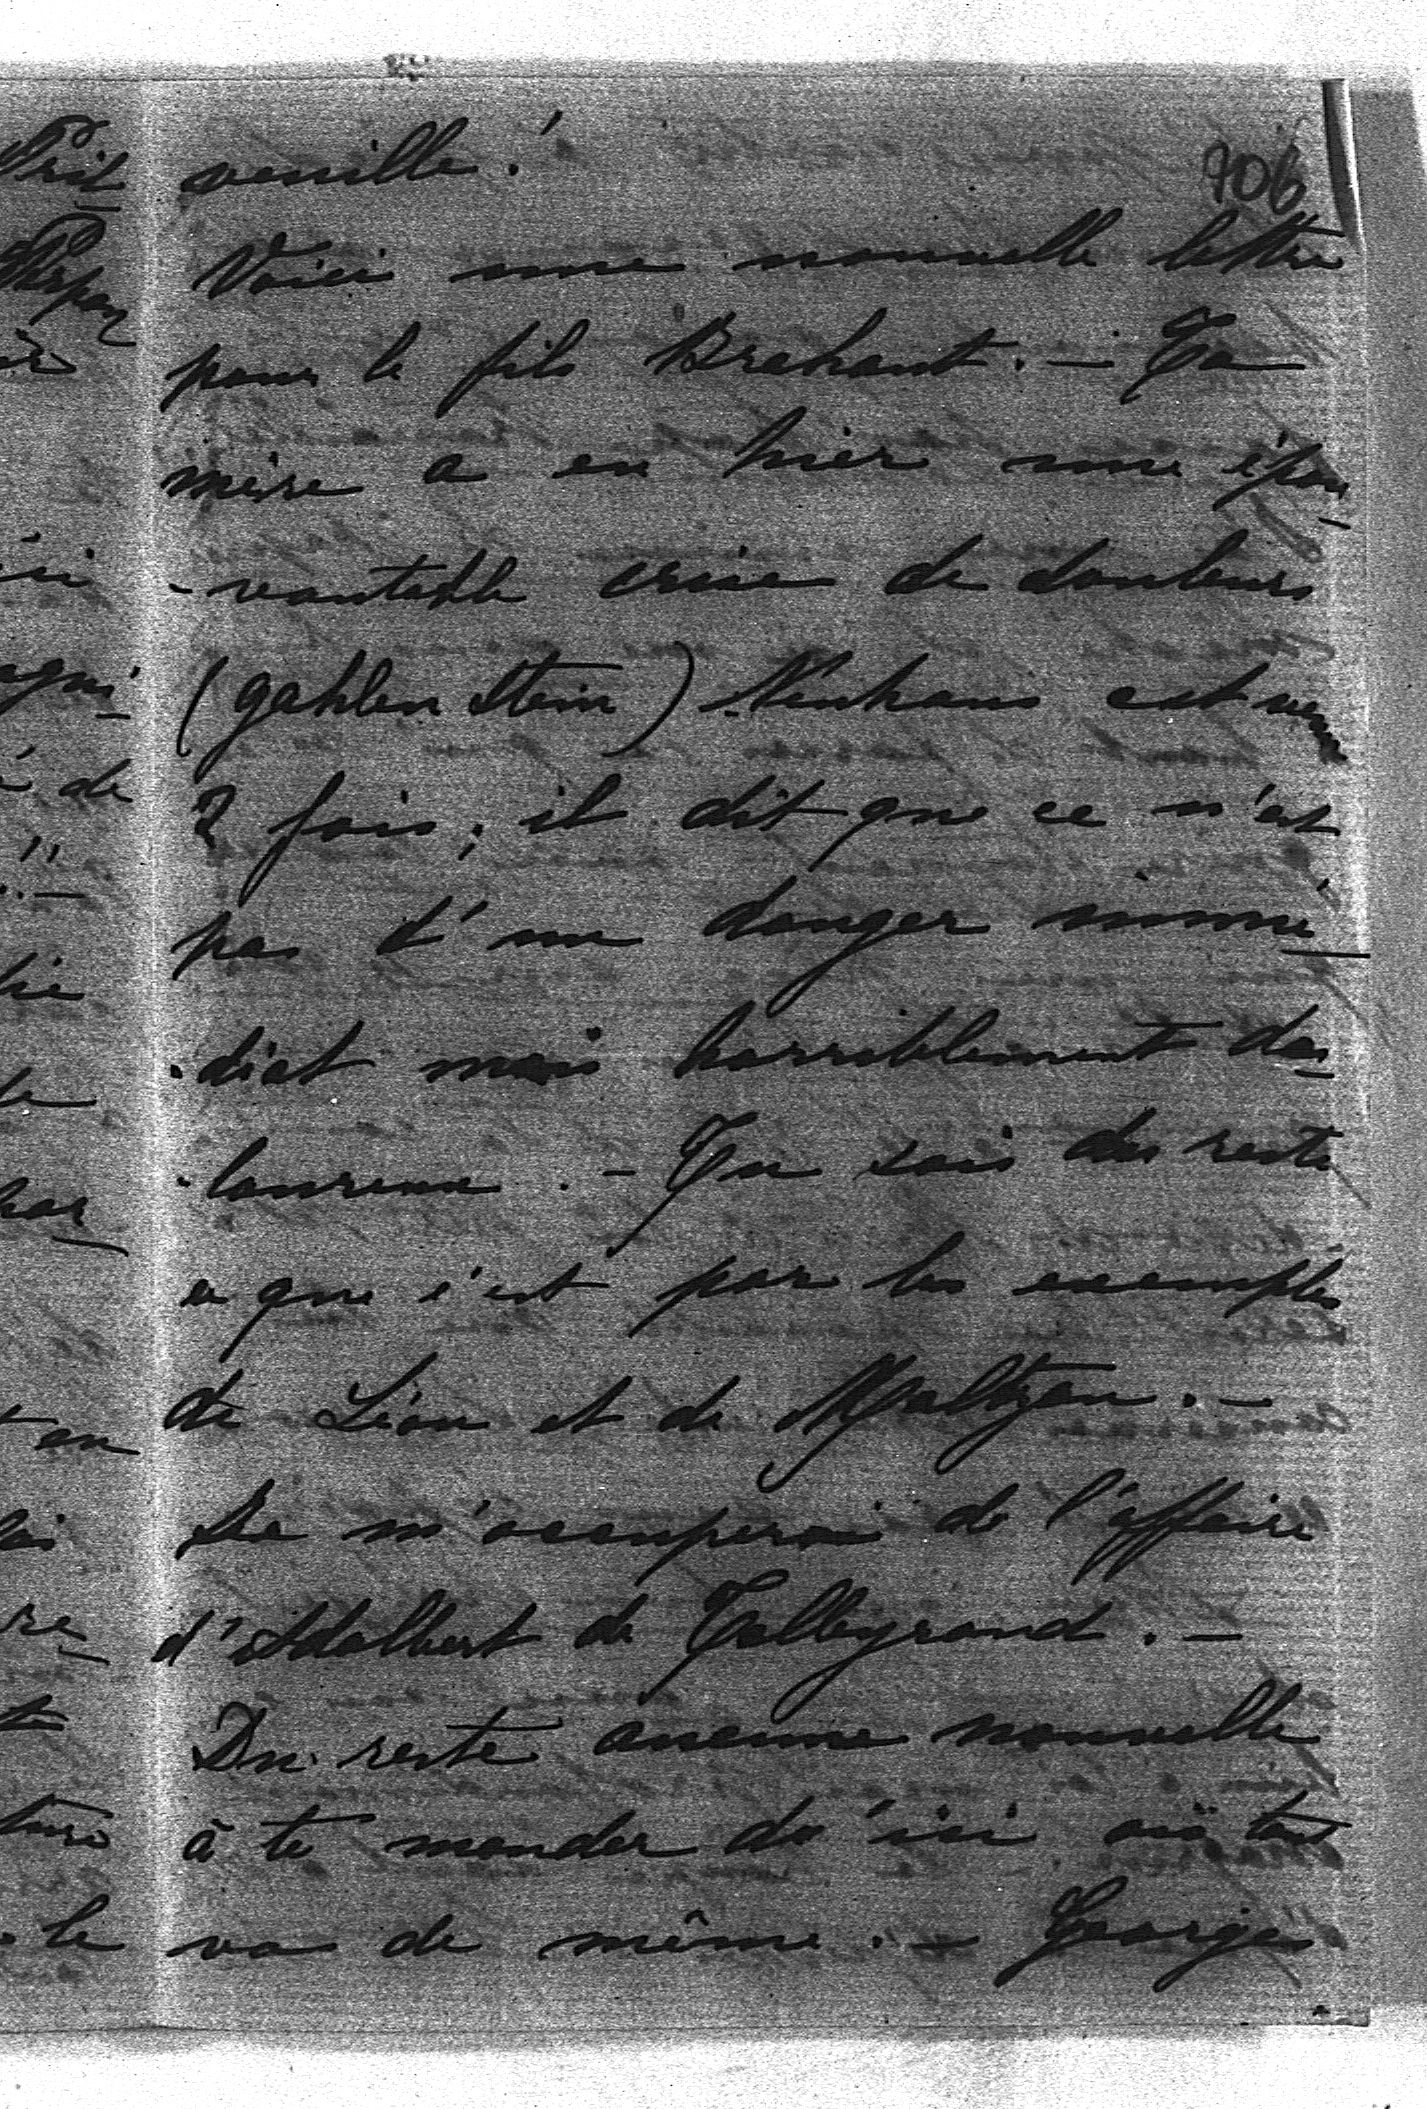 706
veuille!
Voici une nouvelle lettre
pour le fils Brehant. – Ta
mère a eu hier une épou-
-vantable crise de douleurs
(gahlen Stein) Neuhaus est venu
2 fois; il dit que ce n'est
pas d'un danger immé-
-diat mais horriblement dou-
-loureux. – Tu sais du reste
ce que c'est par les exemples
de Léon et de Maltzan. –
Je m'occuperai de l'affaire
d'Adalbert de Talleyrand. –
Du reste aucune nouvelle
à te mander d'ici où tout
va de même. – Georges